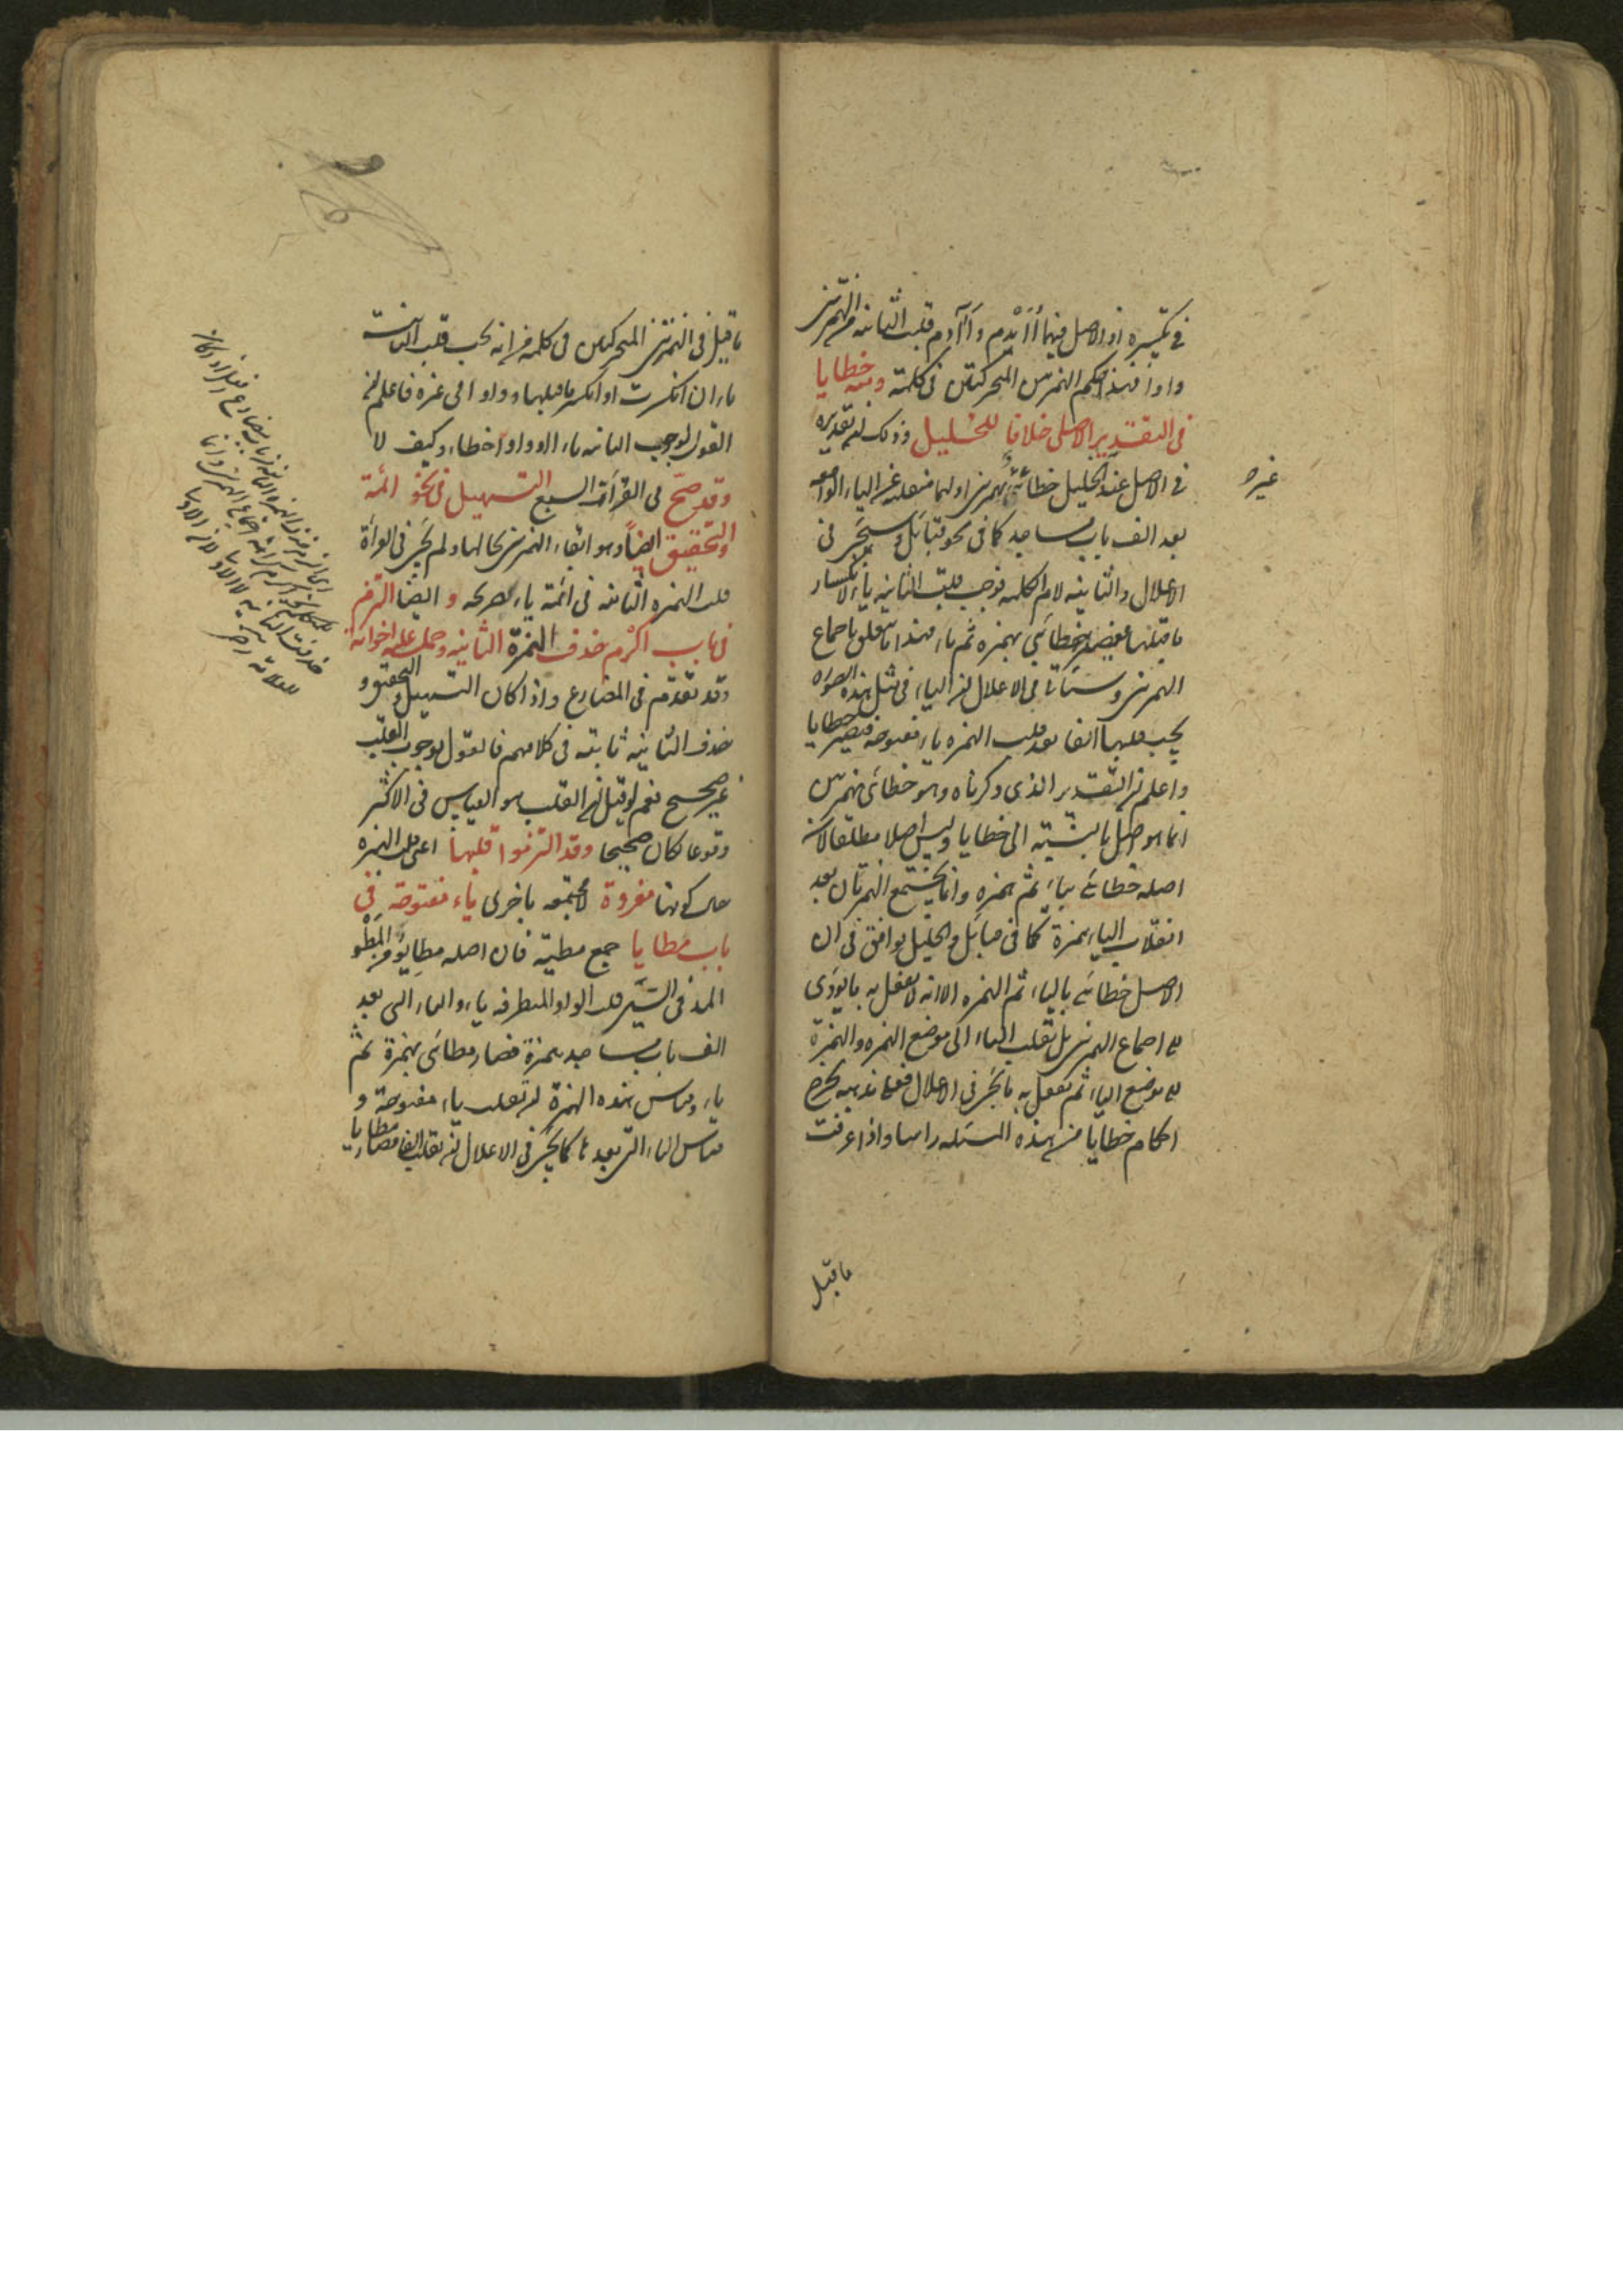 في تكسيره اذ الاصل فيهما أُأَيْدِم وأَآدِم قلبت الثانية من الهمزتين
واوا فهذا حكم الهمزتين المتحركتين في كلمة ومنه خطايا
في التقدير الاصلي خلافا للخليل وذلك لان تقديره
في الاصل عند الخليل خطائئ بهمزتين اوليهما منقلبة عن الياء الواقعة
غيره
بعد الف باب مساجد كما في نحو قبائل وسيجئ في
الاعلال والثانية لام الكلمة فوجب قلب الثانية ياء لانكسار
ما قبلها فيصير خطائي بهمزة ثم ياء فهذا ما يتعلق باجماع
الهمزتين وسيأتي في الاعلال ان الياء في مثل هذه الصورة
يجب قلبها الفا بعد قلب الهمزة ياء مفتوحة فيصير خطايا
واعلم ان التقدير الذي ذكرناه وهو خطائئ بهمزتين
انما هو اصل بالنسبة الى خطايا وليس اصلا مطلقا لان
اصله خطايئ بياء ثم همزة وانما يجتمع الهمزتان بعد
انقلاب الياء همزة كما في قبائل والخليل يوافق في ان
الاصل خطايئ بالياء ثم الهمزة الا انه لا يفعل به ما يؤدي
الى اجماع الهمزتين بل يقلب الياء الى موضع الهمزة والهمزة
الى موضع الياء ثم يفعل به ما يجئ في الاعلال فعلى مذهبه يخرج
احكام خطايا من هذه المسئلة راسا واذا عرفت
ما قيل
ما قيل في الهمزتين المتحركتين في كلمة من انه يجب قلب الثانية
ياء ان انكسرت او انكسر ما قبلها وواوا في غيره فاعلم ان
القول بوجوب الثانية ياء او واوا خطاء وكيف لا
وقد صح في القراآت السبع التسهيل في نحو ائمة
والتحقيق ايضا وهو ابقاء الهمزتين بحالهما ولم يجئ في القراءة
قلب الهمزة الثانية في ائمة ياء صريحة و ايضا التزم
في باب اكرم حذف الهمزة الثانية وحمل عليه اخواته
وقد تقدم في المضارع واذا كان التسهيل والتحقيق و
حذف الثانية ثابتة في كلامهم فالقول بوجوب القلب
غير صحيح نعم لو قيل ان القلب هو القياس في الاكثر
وقوعا لكان صحيحا وقد التزموا قلبها اعني قلب الهمزة
حال كونها مفردة لا مجتمعة باخرى ياء مفتوحة في
باب مطايا جمع مطية فان اصله مطايو من المطو
المد في السير قلب الواو المتطرفة ياء والياء التي بعد
الف باب مساجد همزة فصار مطائي بهمزة ثم
ياء وقياس هذه الهمزة ان تقلب ياء مفتوحة و
قياس الياء التي بعدها كما يجئ في الاعلال ان تقلب الفا فصار مطايا